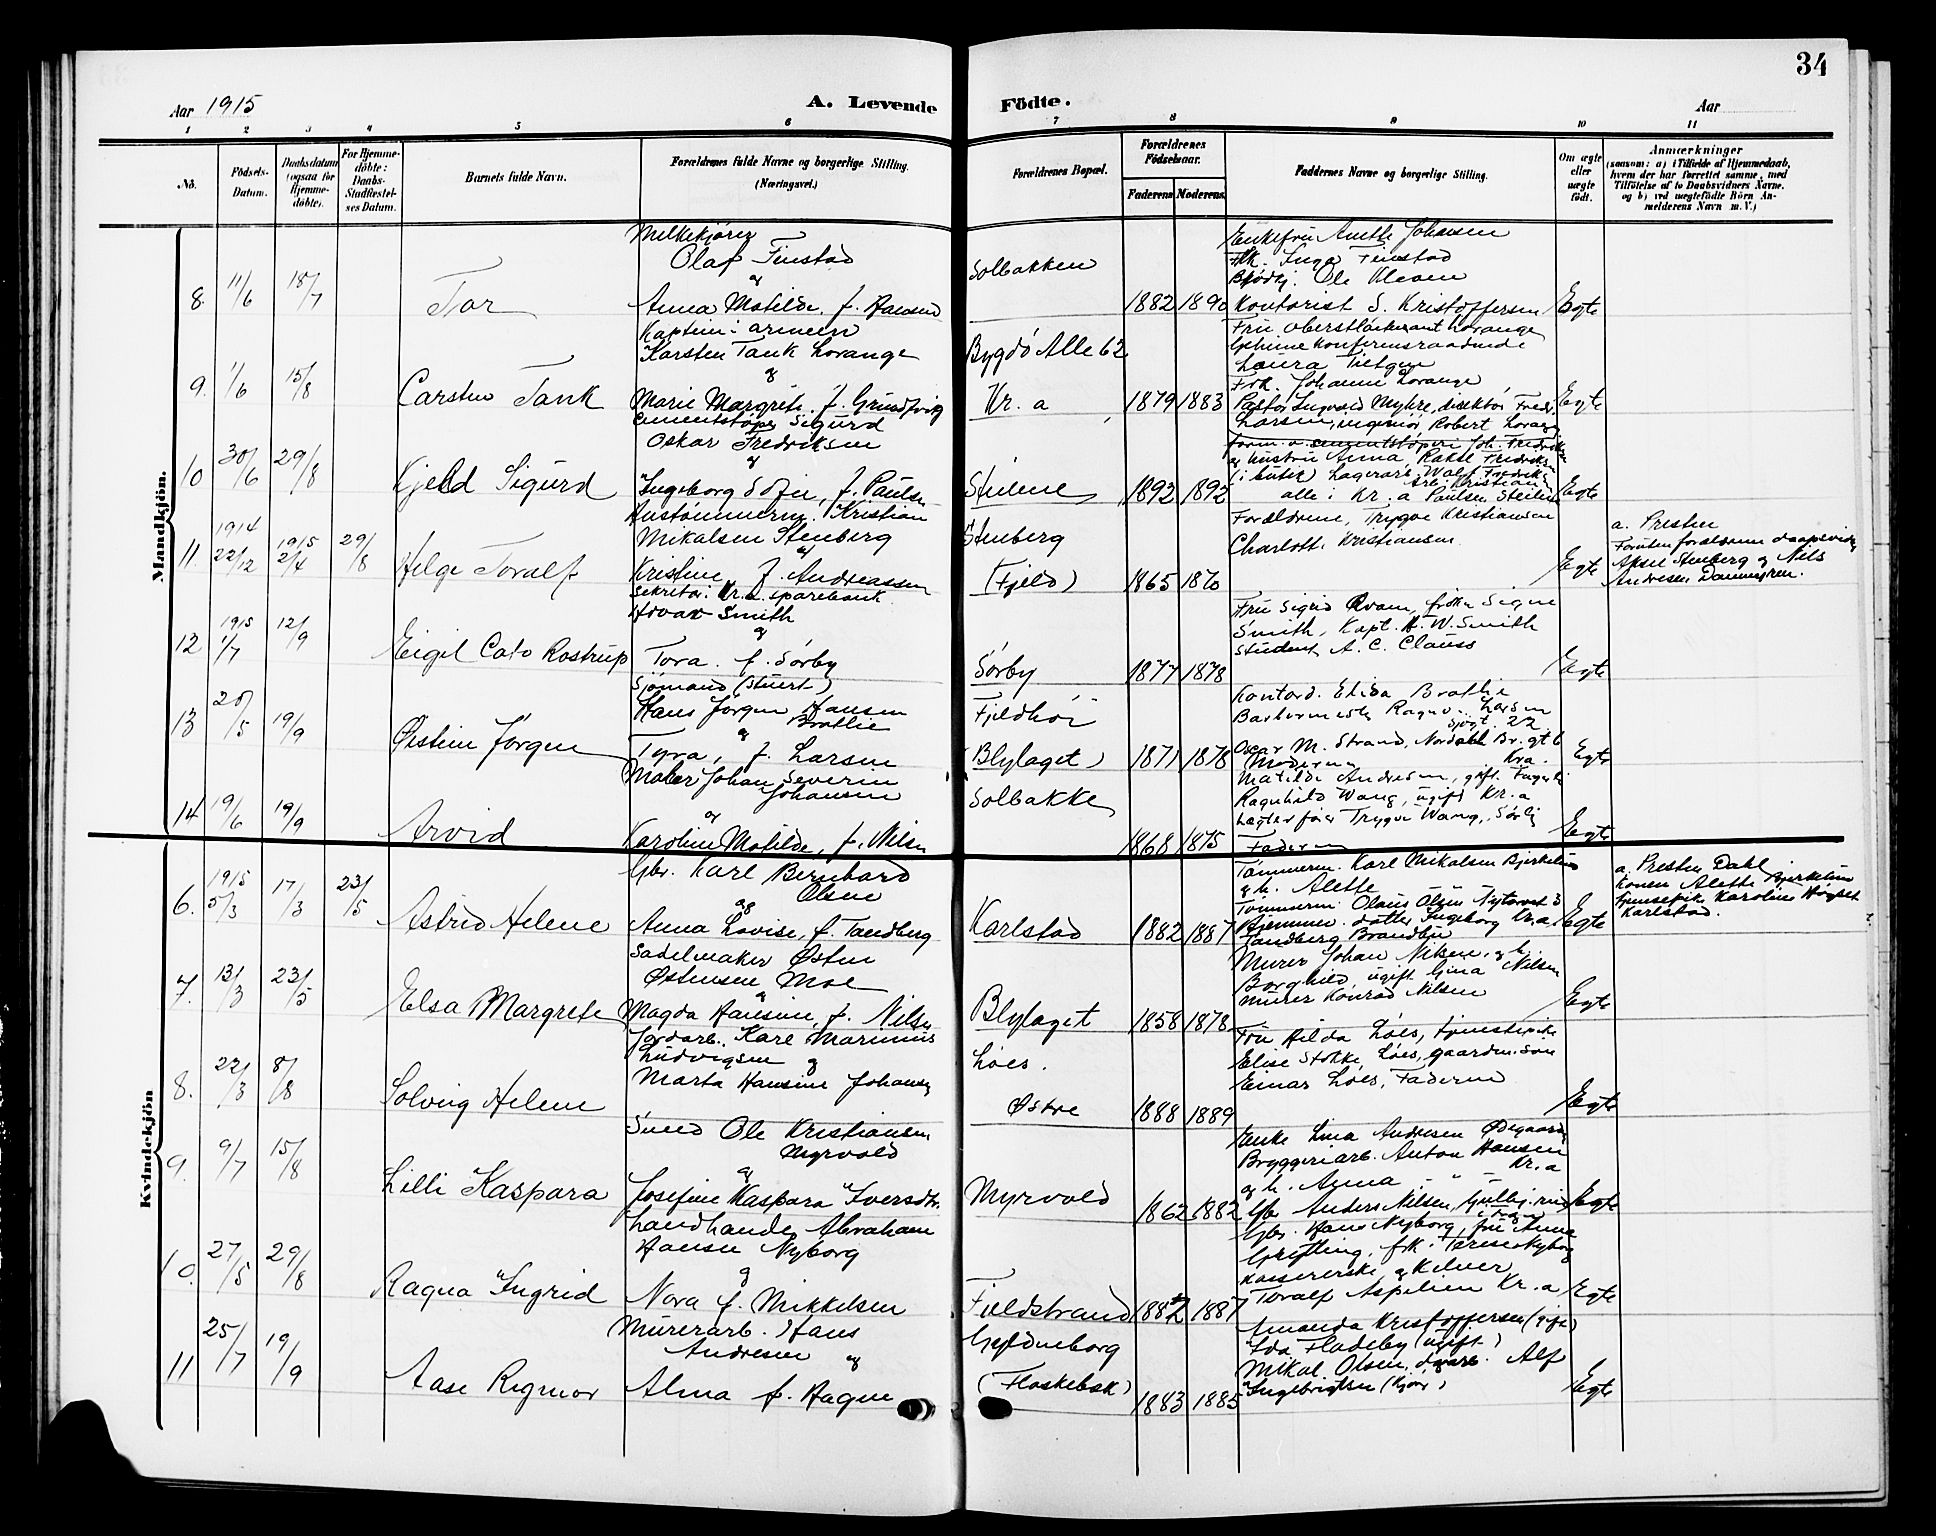 34
Aar 1915
A. Levende
Födte.
Aar
1 2 3 4 5 6 7 8 9 10 11
No.
Födsels-
Datum.
Daabsdatum
(ogsaa for
Hjemme-
döbte).
For Hjemme-
döbte:
Daabs-
Stadfæstel-
ses Datum.
Barnets fulde Navn.
Forældrenes fulde Navne og borgerlige Stilling.
(Næringsvei.)
Forældrenes Bopæl.
Forældrenes
Födselsaar.
Faderens Moderens
Faddernes Navne og borgerlige Stilling.
Om ægte
eller
uægte
födt.
Anmærkninger
(saasom: a) i Tilfælde af Hjemmedaab,
hvem der har forrettet samme, med
Tilföielse af to Daabsvidners Navne.
og b) ved uægtefödte Börn An-
melderens Navn m. V.)
Mandkjön.
8. 11/6 18/7 Tor
Melkekjörer
Olaf Finstad
og
Anna Matilde, f. Hansen
Solbakken
1882 1890
Enkefru Anette Johansen
Frk. Inga Finstad
Ole Kleven
Kontorist S. Kristoffersen
Egte
9. 1/6 15/8 Carsten Tank
Kaptein i armeen
Karsten Tank Lorange
og
Marie Margrete, f. Grundtvig
Bygdö Alle 62
Kr.a
1879 1883
Fru oberstlöitenant Lorange
Geheime Konferensraadinde
Laura Tietgen
Frk. Johanne Lorange
Pastor Ingvald Myhre, direktör Fredr.
Larsen, ingeniör Robert Lorange
Egte
10 30/6 29/8 Kjeld Sigurd
Cementstöper Sigurd
Oskar Fredriksen
og
Ingeborg Sofie, f. Paulsen
Steilene
1892 1892
form. v. cementstöperi Joh. Fredriksen
og hustru Anna, Rakel Fredriksen
(i butik) Lagerarb. Walf. Fredriks.
arb. Kristian
alle i Kr.a Paulsen Steilene
Egte
11. 1914 22/12 1915 2/4 29/8 Helge Toralf
Kristian
Mikalsen Stenberg
og
Kristine, f. Andreassen
Stenberg
(Fjeld)
1865 1870
Forældrene, Trygve Kristiansen
Charlotte Kristiansen
Egte
a. Presten
Foruten forældrene daapsvidn.
Aksel Stenberg og Nils
Andresen Dannengren.
12 1915 1/7 12/9 Eigil Cato Rostrup
Sekretær i Kr.a sparebank
Hovar Smith
og
Tora, f. Sörby
Sörby
1877 1878
Fru Sigrid Qvam, fröken Signe
Smith, Kapt. H. W. Smith
Student A. C. Clauss
Egte
13 20/5 19/9 Östein Jörgen
Sjömand (Stuert)
Hans Jörgen Hansen
Brattlie
og
Tyra, f. Larsen
Fjeldhöi
(Blylaget)
1871 1878
Kontord. Elida Brattlie
Barbermester Ragnv. Larsen
Sjögt. 22
Oscar M. Strand, Nordahl Br. gt 6
Moderen Kra.
Egte
14 19/6 19/9 Arvid
Maler Johan Severin
Johansen
og
Karoline Matilde, f. Nilsen
Solbakken
1868 1875
Matilde Andresen, gift. Fagerli
Ragnhild Wang, ugift Kr.a
Trygve Wang, Sörli
Faderen
Egte
Kvindekjön
6. 1915 5/3 17/3 23/5 Astrid Helene
Gbr. Karl Bernhard
Olsen
og
Anna Lovise, f. Tandberg
Karlstad
1882 1887
Tömmerm. Karl Mikalsen Bjerkelund
og h. Alette
Tömmerm. Olaus Olsen Nytorvet 3
Hjemmev. datter Ingeborg Kr.a
Tandberg Brandbu
Egte
a. Presten Dahl
Konen Alette Bjerkelund
tjenestepike Karoline
Karlstad.
7. 13/3 23/5 Elsa Margrete
Sadelmaker Østen
Østensen Moe
og
Magda Hansine, f. Nilsen
Blylaget
1858 1878
Murer Johan Nilsen, og h.
Borghild, ugift Gina Nilsen
Murer Konrad Nilsen
Egte
8. 22/3 8/8 Solveig Helene
Jordarb. Karl Marinius
Ludvigsen og
Marta Hansine Johansen
Löes.
Østre
1888 1889
Fru Hilda Löes, tjenestepike
Elise Stokke, Löes, gaardm. sön
Einar Löes, Faderen
Egte
9. 9/7 15/8 Lilli Kaspara
Smed Ole Kristiansen
Myrvold
og
Josefine Kaspara Iversdtr.
Myrvold
1862 1882
Enke Lina Andresen Ødegaarden
Bryggeriarb. Anton Hansen
Kr.a
og h. Anna - " -
Gbr. Anders Nilsen,
Egte
10. 27/5 29/8 Ragna Ingrid
Landhandler Abraham
Hansen Nyborg
og
Nora f. Mikkelsen
Fjeldstrand
1882 1887
Gbr. Hans Nyborg, fru Anna
Grefling, frk. Terese Nyborg
Kassererske og Kelner
Toralf Aspelien Kr.a
Egte
11 25/7 19/9 Aase Rigmor
Murerarb. Hans
Andresen og
Alma f. Hagen
Gyldneborg
(Flaskebæk)
1883 1885
Amanda Kristoffersen (gift)
Ida Fladeby (ugift)
Mikal Olsen, dgarb. Alf
Ingebrigtsen
Egte